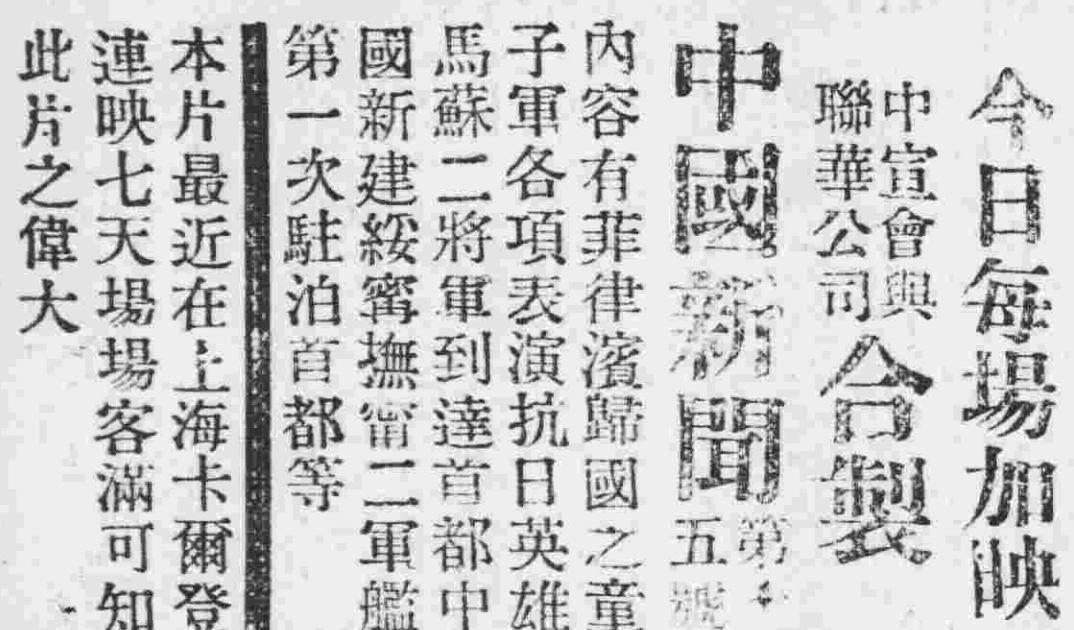 今日每場加映
中宣會與
聯華公司
合製
中國新聞
第
五號
內容有菲律濱歸國之童
子軍各項表演抗日英雄
馬蘇二將軍到達首都中
國新建綏甯撫甯二軍艦
第一次駐泊首都等
本片最近在上海卡爾登
連映七天場場客滿可知
此片之偉大